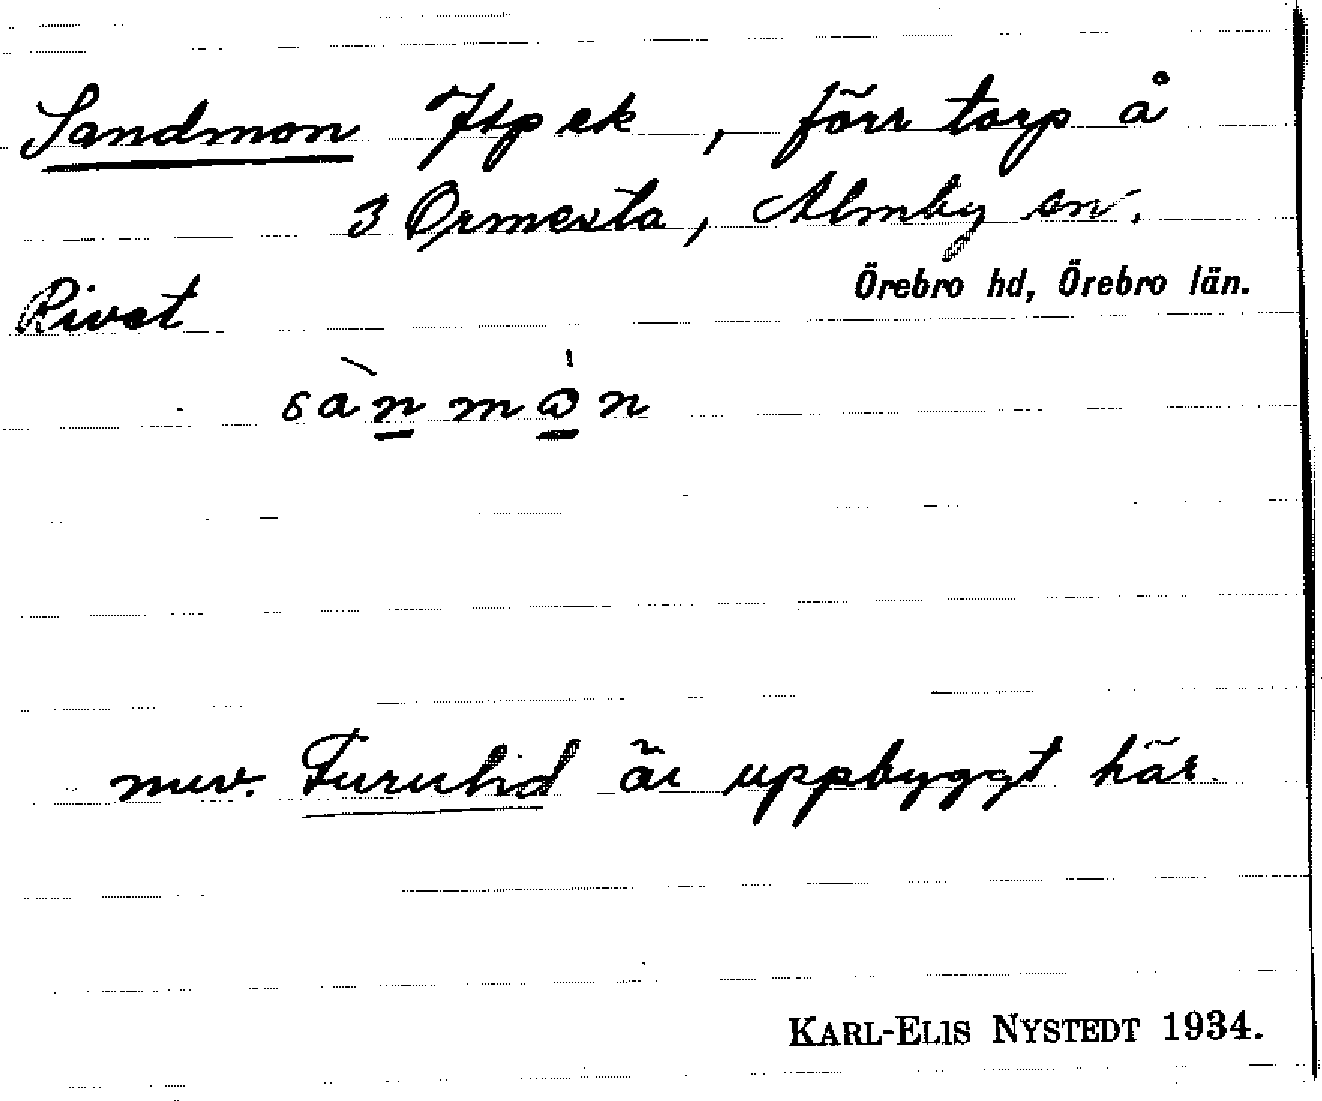 Sandmon Jtp ek, förr torp å
3 Ormesta, Almby sn.
Örebro hd, Örebro län.
Rivet
sànmòn
nuv. Furulid är uppbyggt här
KARL-ELIS NYSTEDT 1934.